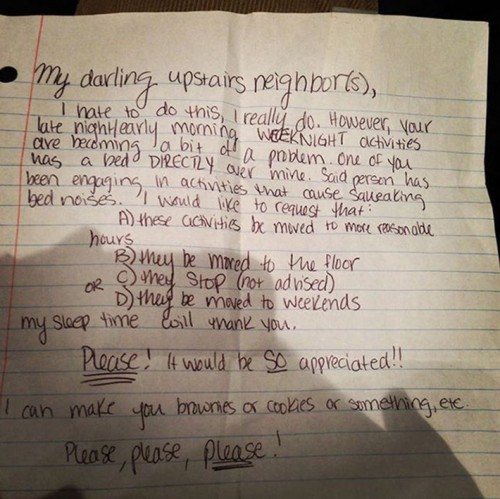 My darling upstairs neighbor(s),
I hate to do this, I really do. However, your
late night/early morning, WEEKNIGHT activities
are becoming a bit of a problem. One of you
has a bed DIRECTLY over mine. Said person has
been engaging in activities that cause squeaking
bed noises. I would like to request that:
A) these activities be moved to more reasonable
hours
B) they be moved to the floor
OR C) they STOP (not advised)
D) they be moved to weekends
my sleep time will thank you.
Please! It would be SO appreciated!!
I can make you brownies or cookies or something, etc.
Please, please, please!